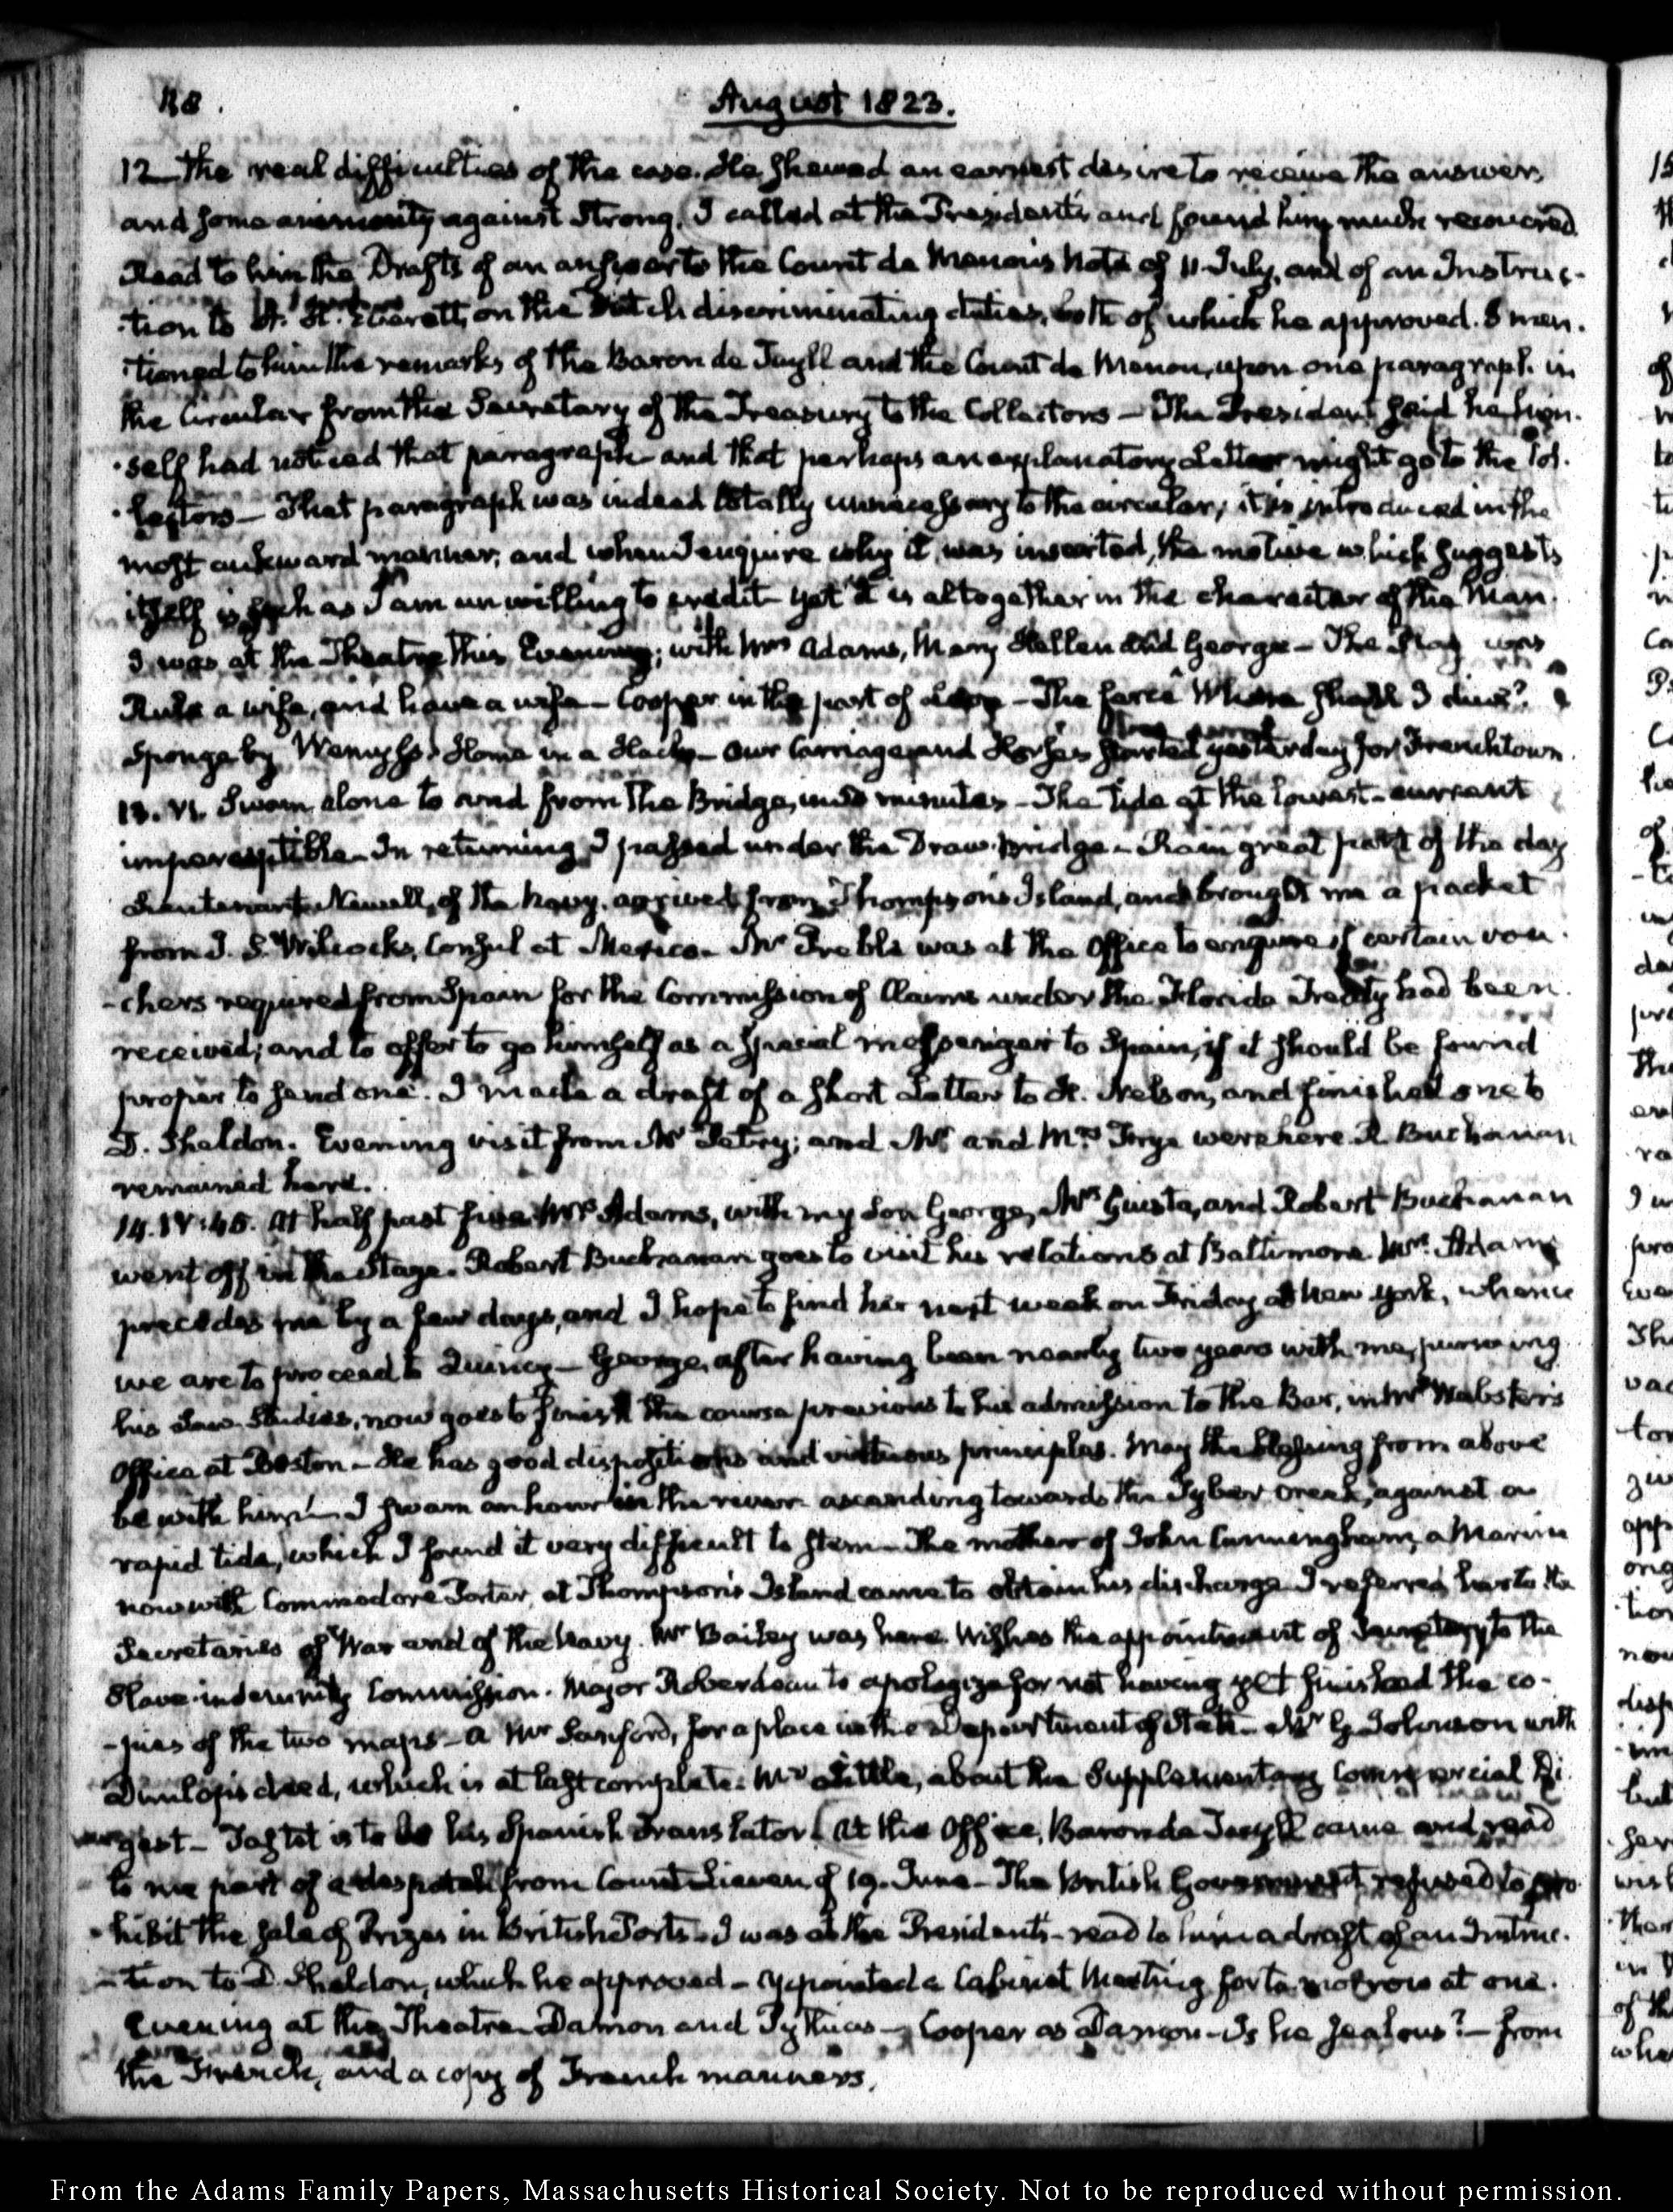 August 1823.
12 the real difficulties of the case. He shewed an earnest desire to receive the answer,
and some animosity against Strong. I called at the President's and found him much recovered.
Read to him the Drafts of an answer to the Count de Menou's Note of 11. July, and of an Instruc-
-tion to A. H. Everett, on the Dutch discriminating duties, both of which he approved. I men-
-tioned to him the remarks of the Baron de Tuyll and the Count de Menou, upon one paragraph in
the Circular from the Secretary of the Treasury to the Collectors — The President said he him-
-self had noticed that paragraph and that perhaps an explanatory Letter might go to the Col-
-lectors — That paragraph was indeed totally unnecessary to the circular; it is introduced in the
most aukward manner, and when I enquire why it was inserted, the motive which suggests
itself is such as I am unwilling to credit yet it is altogether in the character of the Man.
I was at the Theatre this Evening; with Mrs Adams, Mary Hellen and George — The Play was
Rule a wife, and have a wife — Cooper in the part of Leon — The farce Where shall I dine?
Sponge by Wemyss. Home in a Hack — Our Carriage and Horses started yesterday for Frenchtown.
13. VI. Swam alone to and from the Bridge, in minutes — The tide at the lowest — current
imperceptible — In returning I passed under the Draw-bridge — Rain great part of the day
Lieutenant Newell, of the Navy, arrived from Thompson's Island, and brought me a packet
from J. S. Wilcocks, Consul at Mexico — Mr Preble was at the Office to enquire if certain vou-
-chers required from Spain for the Commission of Claims under the Florida Treaty had been
received; and to offer to go himself as a special messenger to Spain, if it should be found
proper to send one. I made a draft of a short Letter to H. Nelson, and finished one to
D. Sheldon. Evening visit from Mr Petry; and Mr and Mrs Frye were here. R. Buchanan
remained here.
14. IV:45. At half past five Mrs Adams, with my Son George, Mr Giusta, and Robert Buchanan
went off in the Stage. Robert Buchanan goes to visit his relations at Baltimore. Mrs. Adams
precedes me by a few days, and I hope to find her next week on Friday at New York, whence
we are to proceed to Quincy — George, after having been nearly two years with me, pursuing
his Law Studies, now goes to finish the course previous to his admission to the Bar, in Mr Webster's
Office at Boston — He has good dispositions and virtuous principles. May the blessing from above
be with him! — I swam an hour in the river ascending towards the Tyber creek, against a
rapid tide, which I found it very difficult to stem — The mother of John Cunningham, a Marine
now with Commodore Porter, at Thompson's Island came to obtain his discharge. I referred her to the
Secretaries of War and of the Navy. Mr Bailey was here. Wishes the appointment of Secretary to the
Slave-indemnity Commission. Major Roberdeau to apologize for not having yet finished the co-
-pies of the two maps — a Mr Sanford, for a place in the Department of State — Mr G. Johnson with
Dunlop's deed, which is at last complete. Mr Little, about the Supplementary Commercial Di-
-gest — is to be his Spanish Translator. At the Office, Baron de Tuyll came and read
to me part of a despatch from Count Lieven of 19. June — The British Government refused to pro-
-hibit the sale of Prizes in British Ports — I was at the President's — read to him a draft of an Instruc-
-tion to D. Sheldon, which he approved — appointed a Cabinet Meeting for to-morrow at one.
Evening at the Theatre — Damon and Pythias — Cooper as Damon — Is he Jealous? — from
the French, and a copy of French manners.
From the Adams Family Papers, Massachusetts Historical Society. Not to be reproduced without permission.